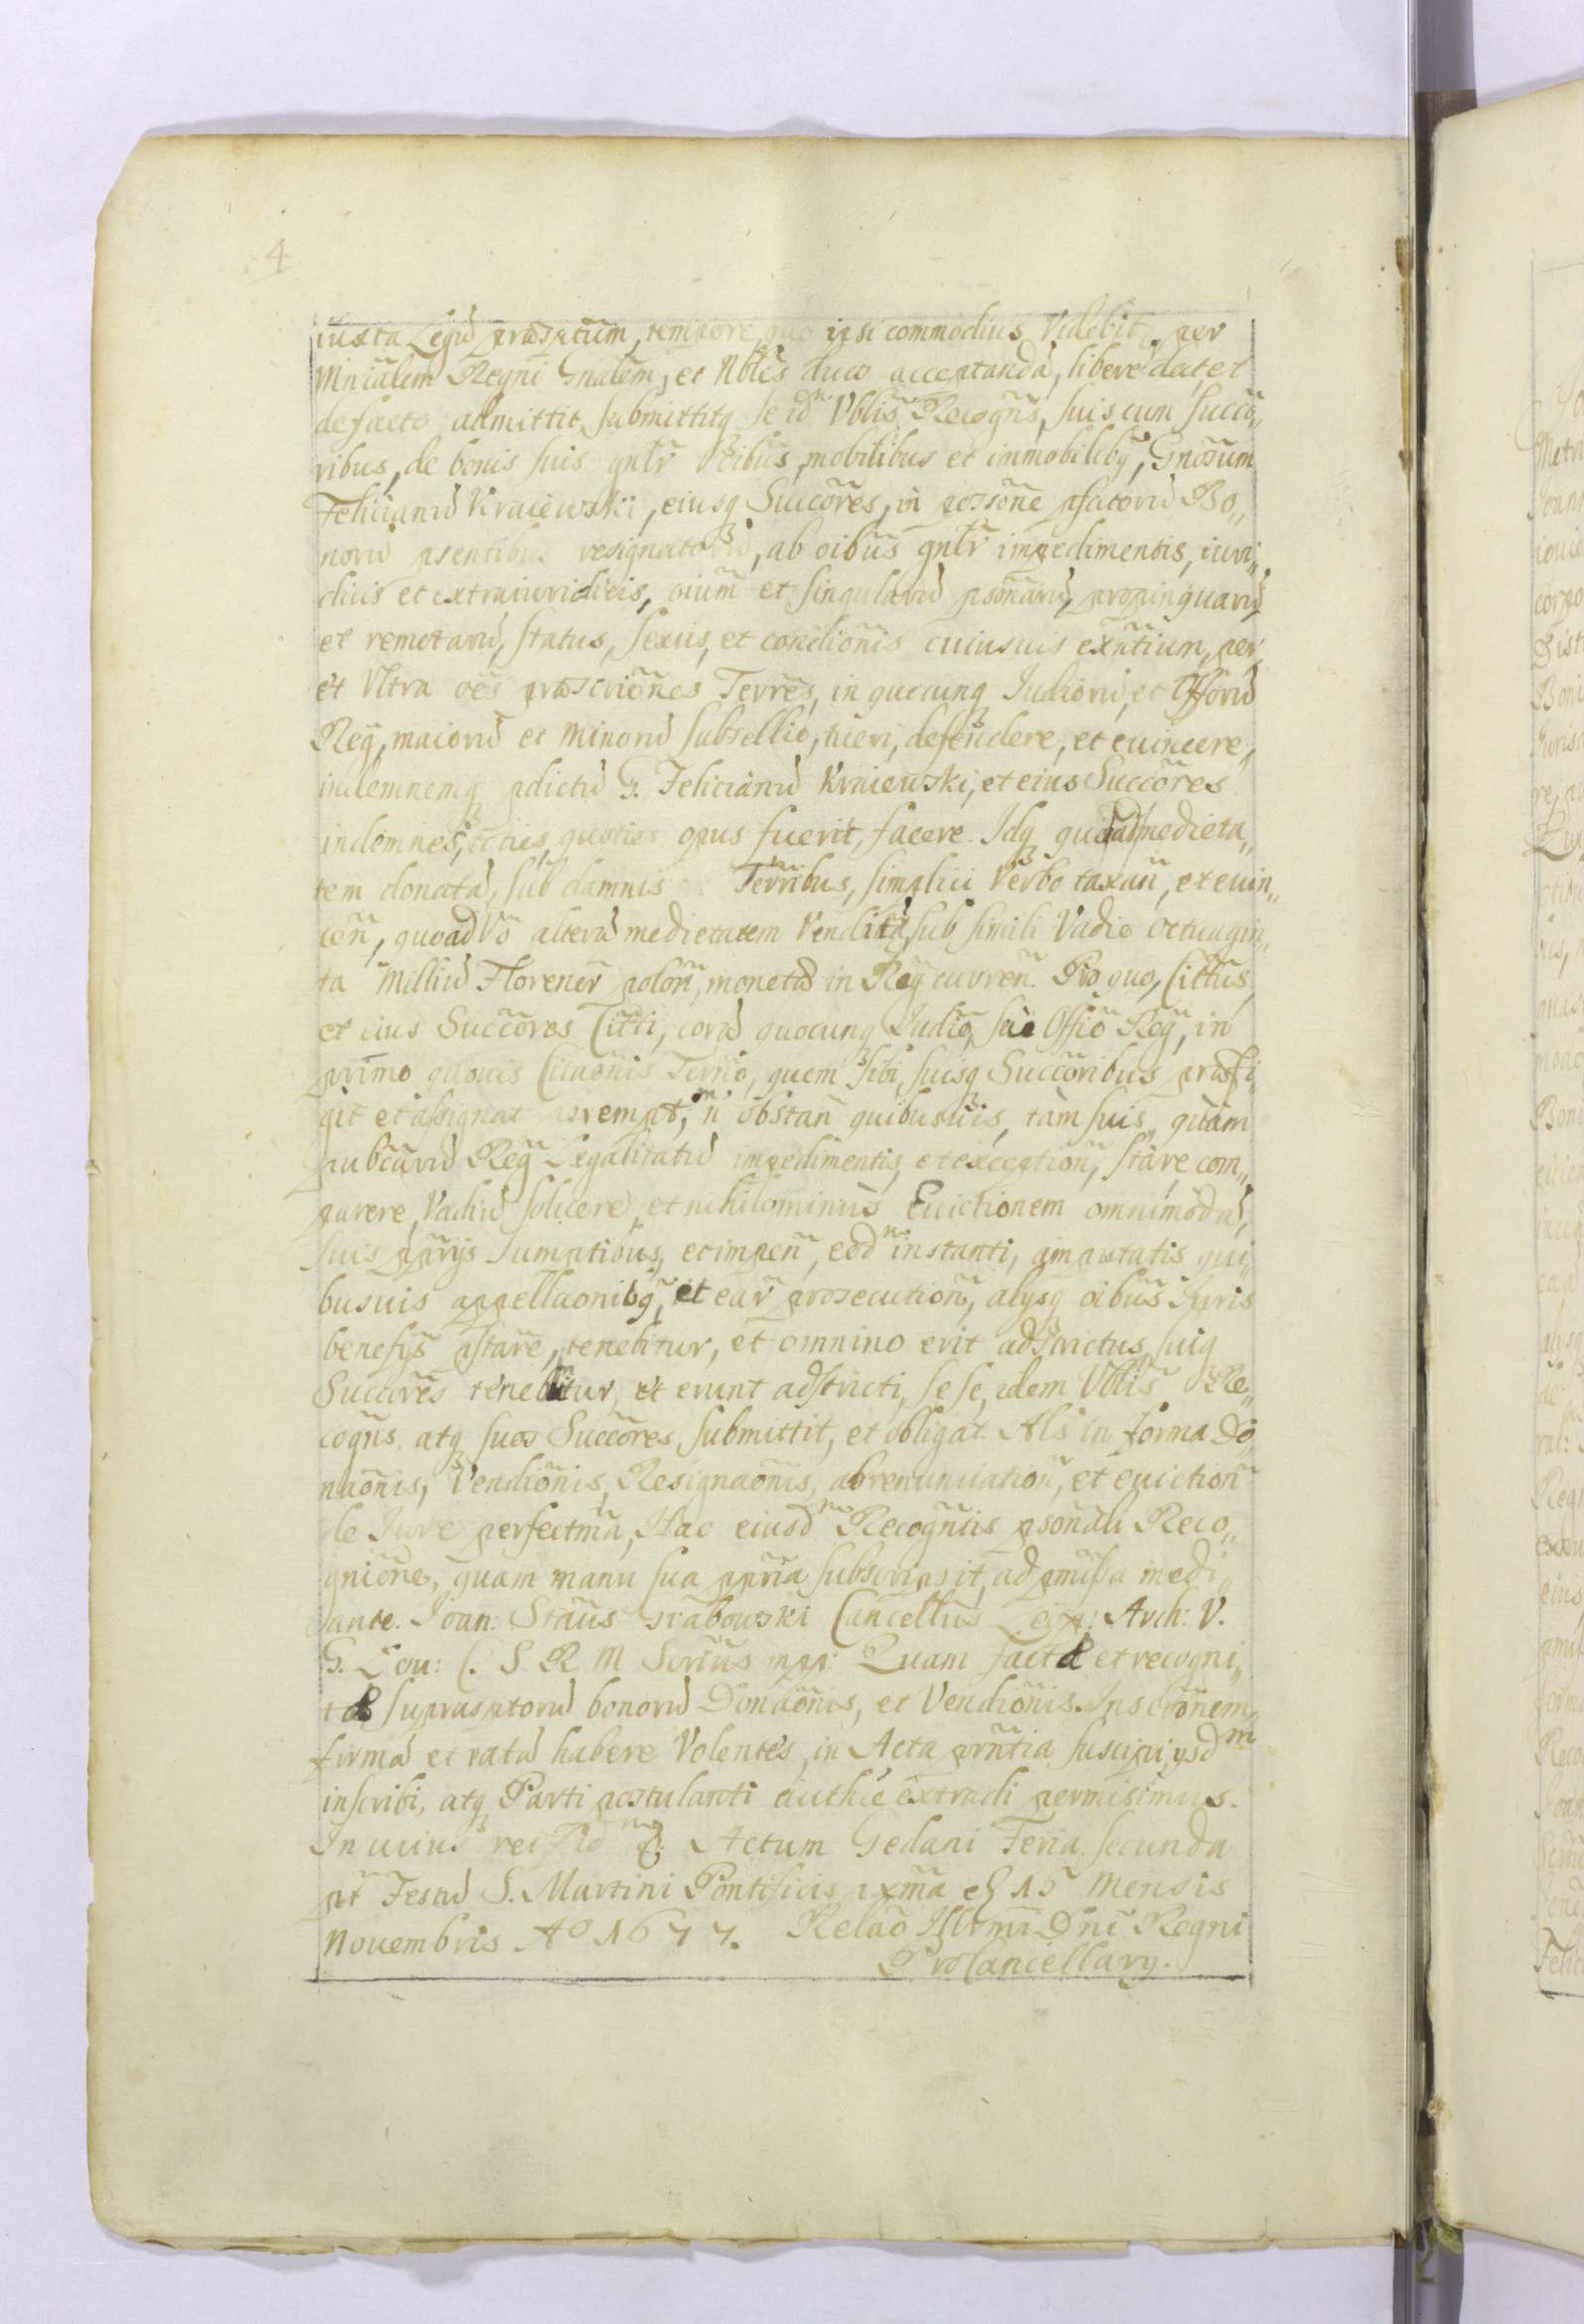 4
iuxta Legũ præscriptum, tempore quo ipsi commodius Videbit, per
Mnialem Regni Gnalem, et Nbles duos acceptandã, libere dat, et
de facto admittit, submittitq se idm Vblis Recogns, suis cum Succo„
ribus, de bonis suis gnlr oibus, mobilibus et immobilibq, Gnosum
Felicianũ Kraiewski, eiusq Succores, in possone pfatorũ Bo„
norũ psentibus resignatorũ, ab oibus gnlr impedimentis, iuri„
dicis et extraiuridicis, oium et singularũ psonarũ, propinquarũ,
et remotarũ, status, sexus, et condionis cuiusuis exntium, per
et Vltra oes præscriones Terres, in quocunq Iudiorũ, et Offorũ
Reg, maiorũ et minorũ subsellio, tueri, defendere, et euincere,
indemnemq pdictũ G. Felicianũ Kraiewski, et eius Succores
indemnes, toties, quoties opus fuerit, facere. Idq quoad medieta„
tem donatã, sub damnis Terribus, simplici Verbo taxan, et euin„
cen, quoad Vo alterã medietatem Venditã, sub simili Vadio octuagin„
ta Milliũ Florenor polon, monetæ in Reg curren. Pro quo, Cittus,
et eius Succores Citti, corã quocunq Iudio, seu Offio Reg, in
primo quouis Citaonis Terrio, quem sibi, suisq Succoribus præfi„
git et assignat perempt, n obstan quibusuis, tam suis, quam
pubcarũ Reg Legalitatũ impedimentis, et exception, stare, com„
parere, Vadiũ soluere, et nihilominus Euictionem omnimodã,
suis pprijs sumptibus, et impen, eodm instanti, amputatis qui„
busuis appellaonibq, et ear prosecution, alijsq oibus Iuris
benefijs pstare, tenebitur, et omnino erit adstrictus, suiq
Succores tenebutur, et erunt adstricti, se se, idem Vblis Re„
cogns, atq suos Succores, submittit, et obligat. Als in forma Do„
naonis, Vendionis, Resignaonis, abrenunciation, et euiction
de Iure perfectma, Hac eiusdm Recogntis psonali Reco„
gnione, quam manu sua ppria subscripsit, ad pmissa medi„
ante. Joan: Staus Grabowski Cancellus Leop: Arch: V.
G. Cou: C. S. R M Scrius mpp: Quam factæ et recogni„
tæ suprascriptorũ bonorũ Donaonis, et Vendionis. Inscronem
firmã et ratã habere Volentes, in Acta prntia suscipi, ijsdm
inscribi, atq Parti postulanti authce extradi permisimus.
In cuius rei Actum Gedani Feria secunda
pt Festũ S. Martini Pontificis pxma 15 mensis
Nouembris Aº 1677. Relao Illrmi Dni Regni
ProCancellary.